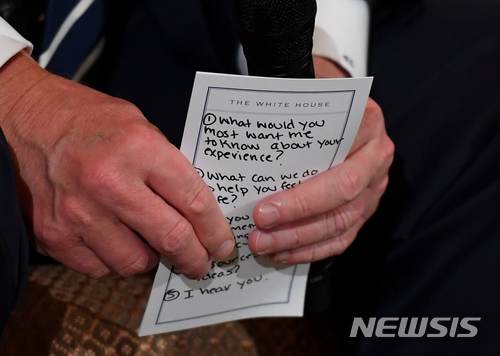 THE WHITE HOUSE
① What would you
most want me
to know about your
experience?
② What can we do
to help you feel
safe?
you
ideas?
⑤ I hear you.
NEWSIS